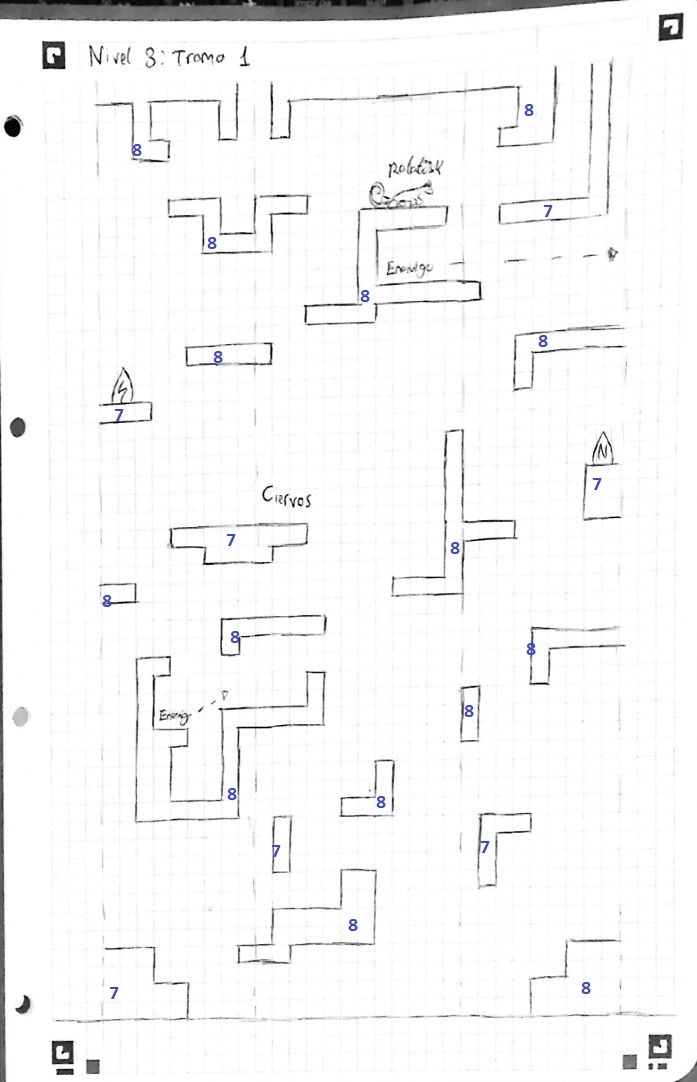 Nivel 3: Tramo 1
8
8
Ratatösk
7
8
Enemigo
8
8
8
7
N
7
Ciervos
7
8
8
8
8
Enemig
8
8
8
7
7
8
7
8